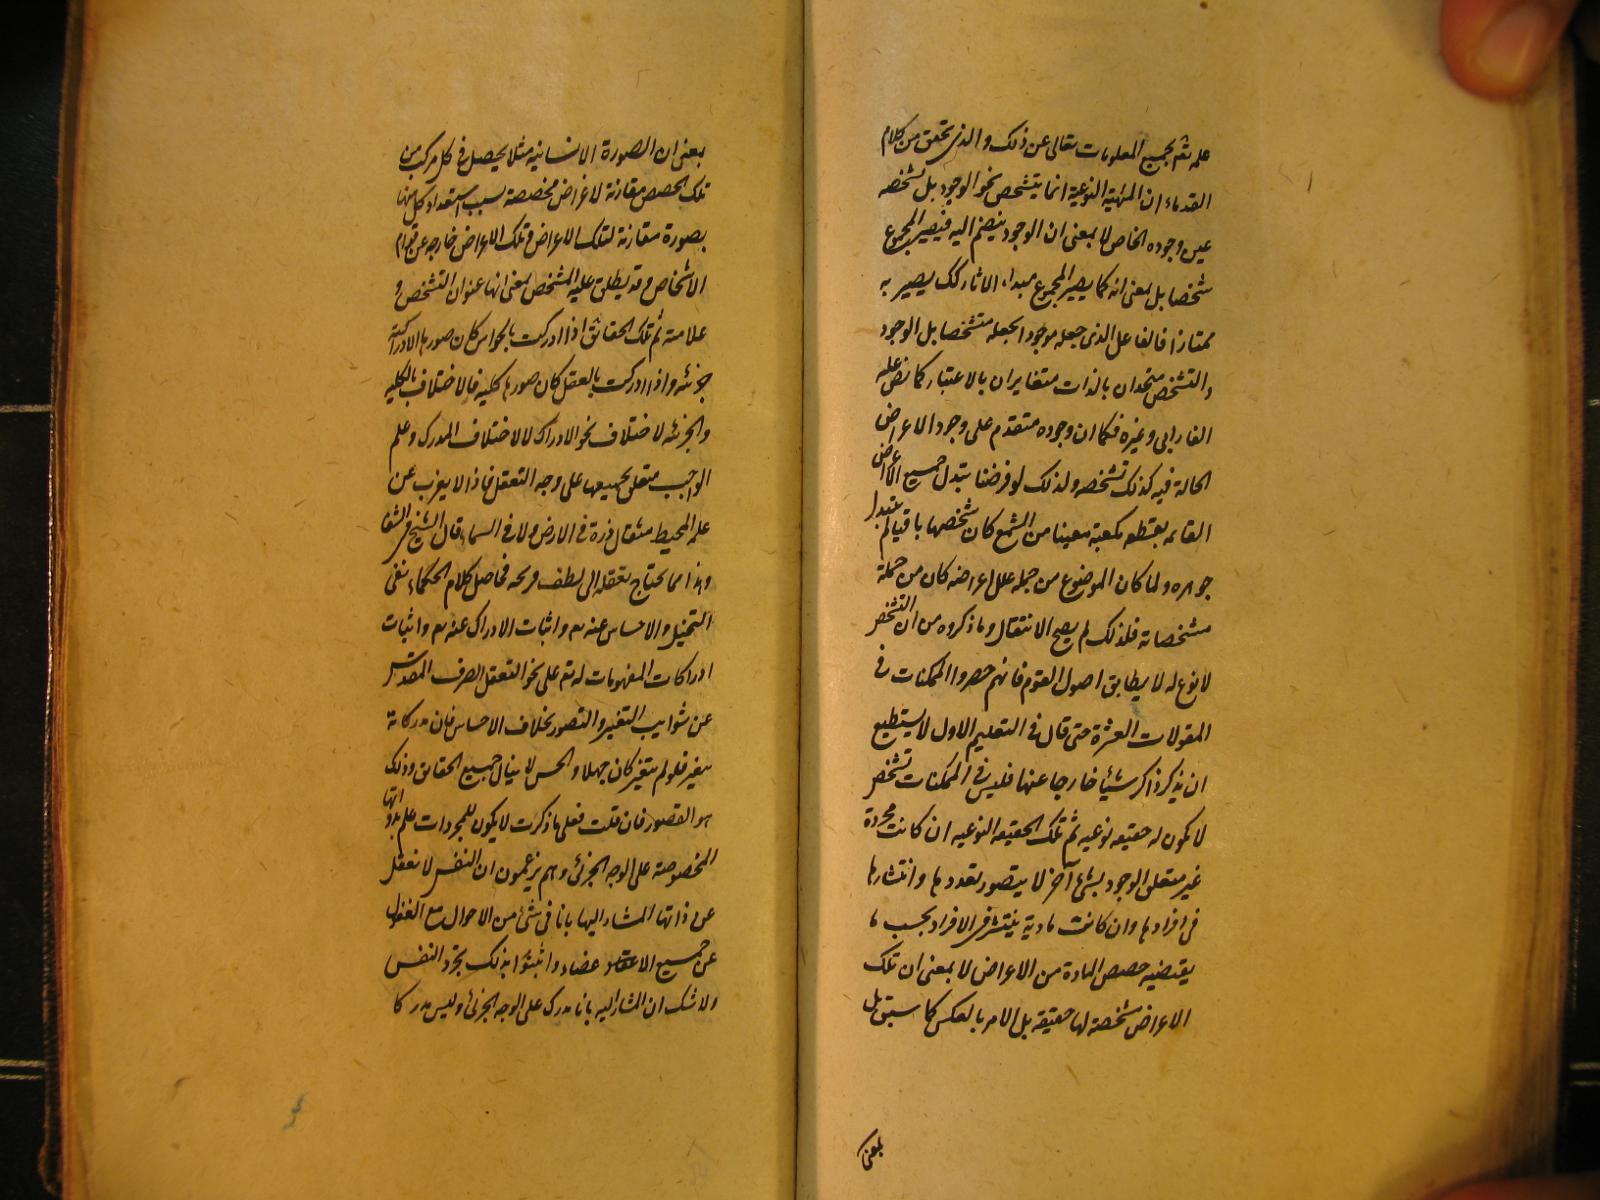 علمه تم بجميع المعلومات تعالى عن ذلك والذى تحقق من كلام
القدماء ان المهية النوعية انما يتشخص بنحو الوجود بل تشخصه
عين وجوده الخاص لا بمعنى ان الوجود ينضم اليه فيصير المجموع
شخصا بل بمعنى انه كما يصير المجموع مبداء الاثار كك يصير به
ممتازا فالفاعل الذى جعله موجودا جعله متشخصا بل الوجود
والتشخص متحدان بالذات متغايران بالاعتبار كما نص عليه
الفارابى وغيره فكما ان وجوده متقدم على وجود الاعراض
الحالة فيه كذلك تشخصه ولذلك لو فرضنا تبدل جميع الاعراض
القائمه بقطعه مكعبة معينا من الشمع كان شخصها باقيا لم يتبدل
جوهره ولما كان الموضوع من جملة علل اعراضه كان من جملة
مشخصاته فلذلك لم يصح الانتقال وما ذكروه من ان التشخص
لا نوع له لا يطابق اصول القوم فانهم حصروا الممكنات فى
المقولات العشرة حتى قال فى التعليم الاول لا يستطيع
ان يذكر ذاكر شيأ خارجا عنها فليس فى الممكنات تشخص
لا يكون له حقيقه نوعيه ثم تلك الحقيقه النوعيه ان كانت مجردة
غير متعلق الوجود بشئ آخر لا يتصور تعددها وانتشارها
فى افرادها وان كانت مادية ينتشر فى الافراد بحسب ما
يقتضيه حصص المادة من الاعراض لا بمعنى ان تلك
الاعراض مشخصة لها حقيقه بل الامر بالعكس كما سبق بل
بمعنى
بمعنى ان الصورة الانسانيه مثلا يحصل فى كل مركب من
تلك الحصص مقارنة لاعراض مخصصة بسبب استعداد كل منها
بصورة مقارنة لتلك الاعراض فتلك الاعراض خارجه عن قوام
الاشخاص وقد يطلق عليه المشخص بمعنى انها عنوان التشخص و
علامته ثم تلك الحقائق اذا ادركت بالحواس كان صورها الادراكية
جزئيه واذا ادركت بالعقل كان صورها كليه فالاختلاف بالكليه
والجزئيه لاختلاف نحو الادراك لا لاختلاف المدرك وعلم
الواجب متعلق بجميعها على وجه التعقل فاذا لا يعزب عن
علمه المحيط مثقال ذرة فى الارض ولا فى السماء قال الشيخ فى الشفا
وهذا مما يحتاج تعقله الى لطف قريحه فحاصل كلام الحكماء نفى
التخيل والاحساس عنه تع واثبات الادراك عنه تع واثبات
ادراكات المفهومات له تم على نحو التعقل الصرف المقدس
عن شوايب التغير والتصور بخلاف الاحساس فان مدركاته
يتغير فلو لم يتغير كان جهلا والحس لا ينال جميع الحقائق وذلك
هو القصور فان قلت فعلى ما ذكرت لا يكون للمجردات علم بذواتها
المخصوصة على الوجه الجزئى وهم يزعمون ان النفس لا تغفل
عن ذاتها المشار اليها بانا فى شئ من الاحوال مع الغفول
عن جميع الاعضاء واثبتوا بذلك تجرد النفس
ولا شك ان المشار اليه بانا مدرك على الوجه الجزئى وليس مدركا